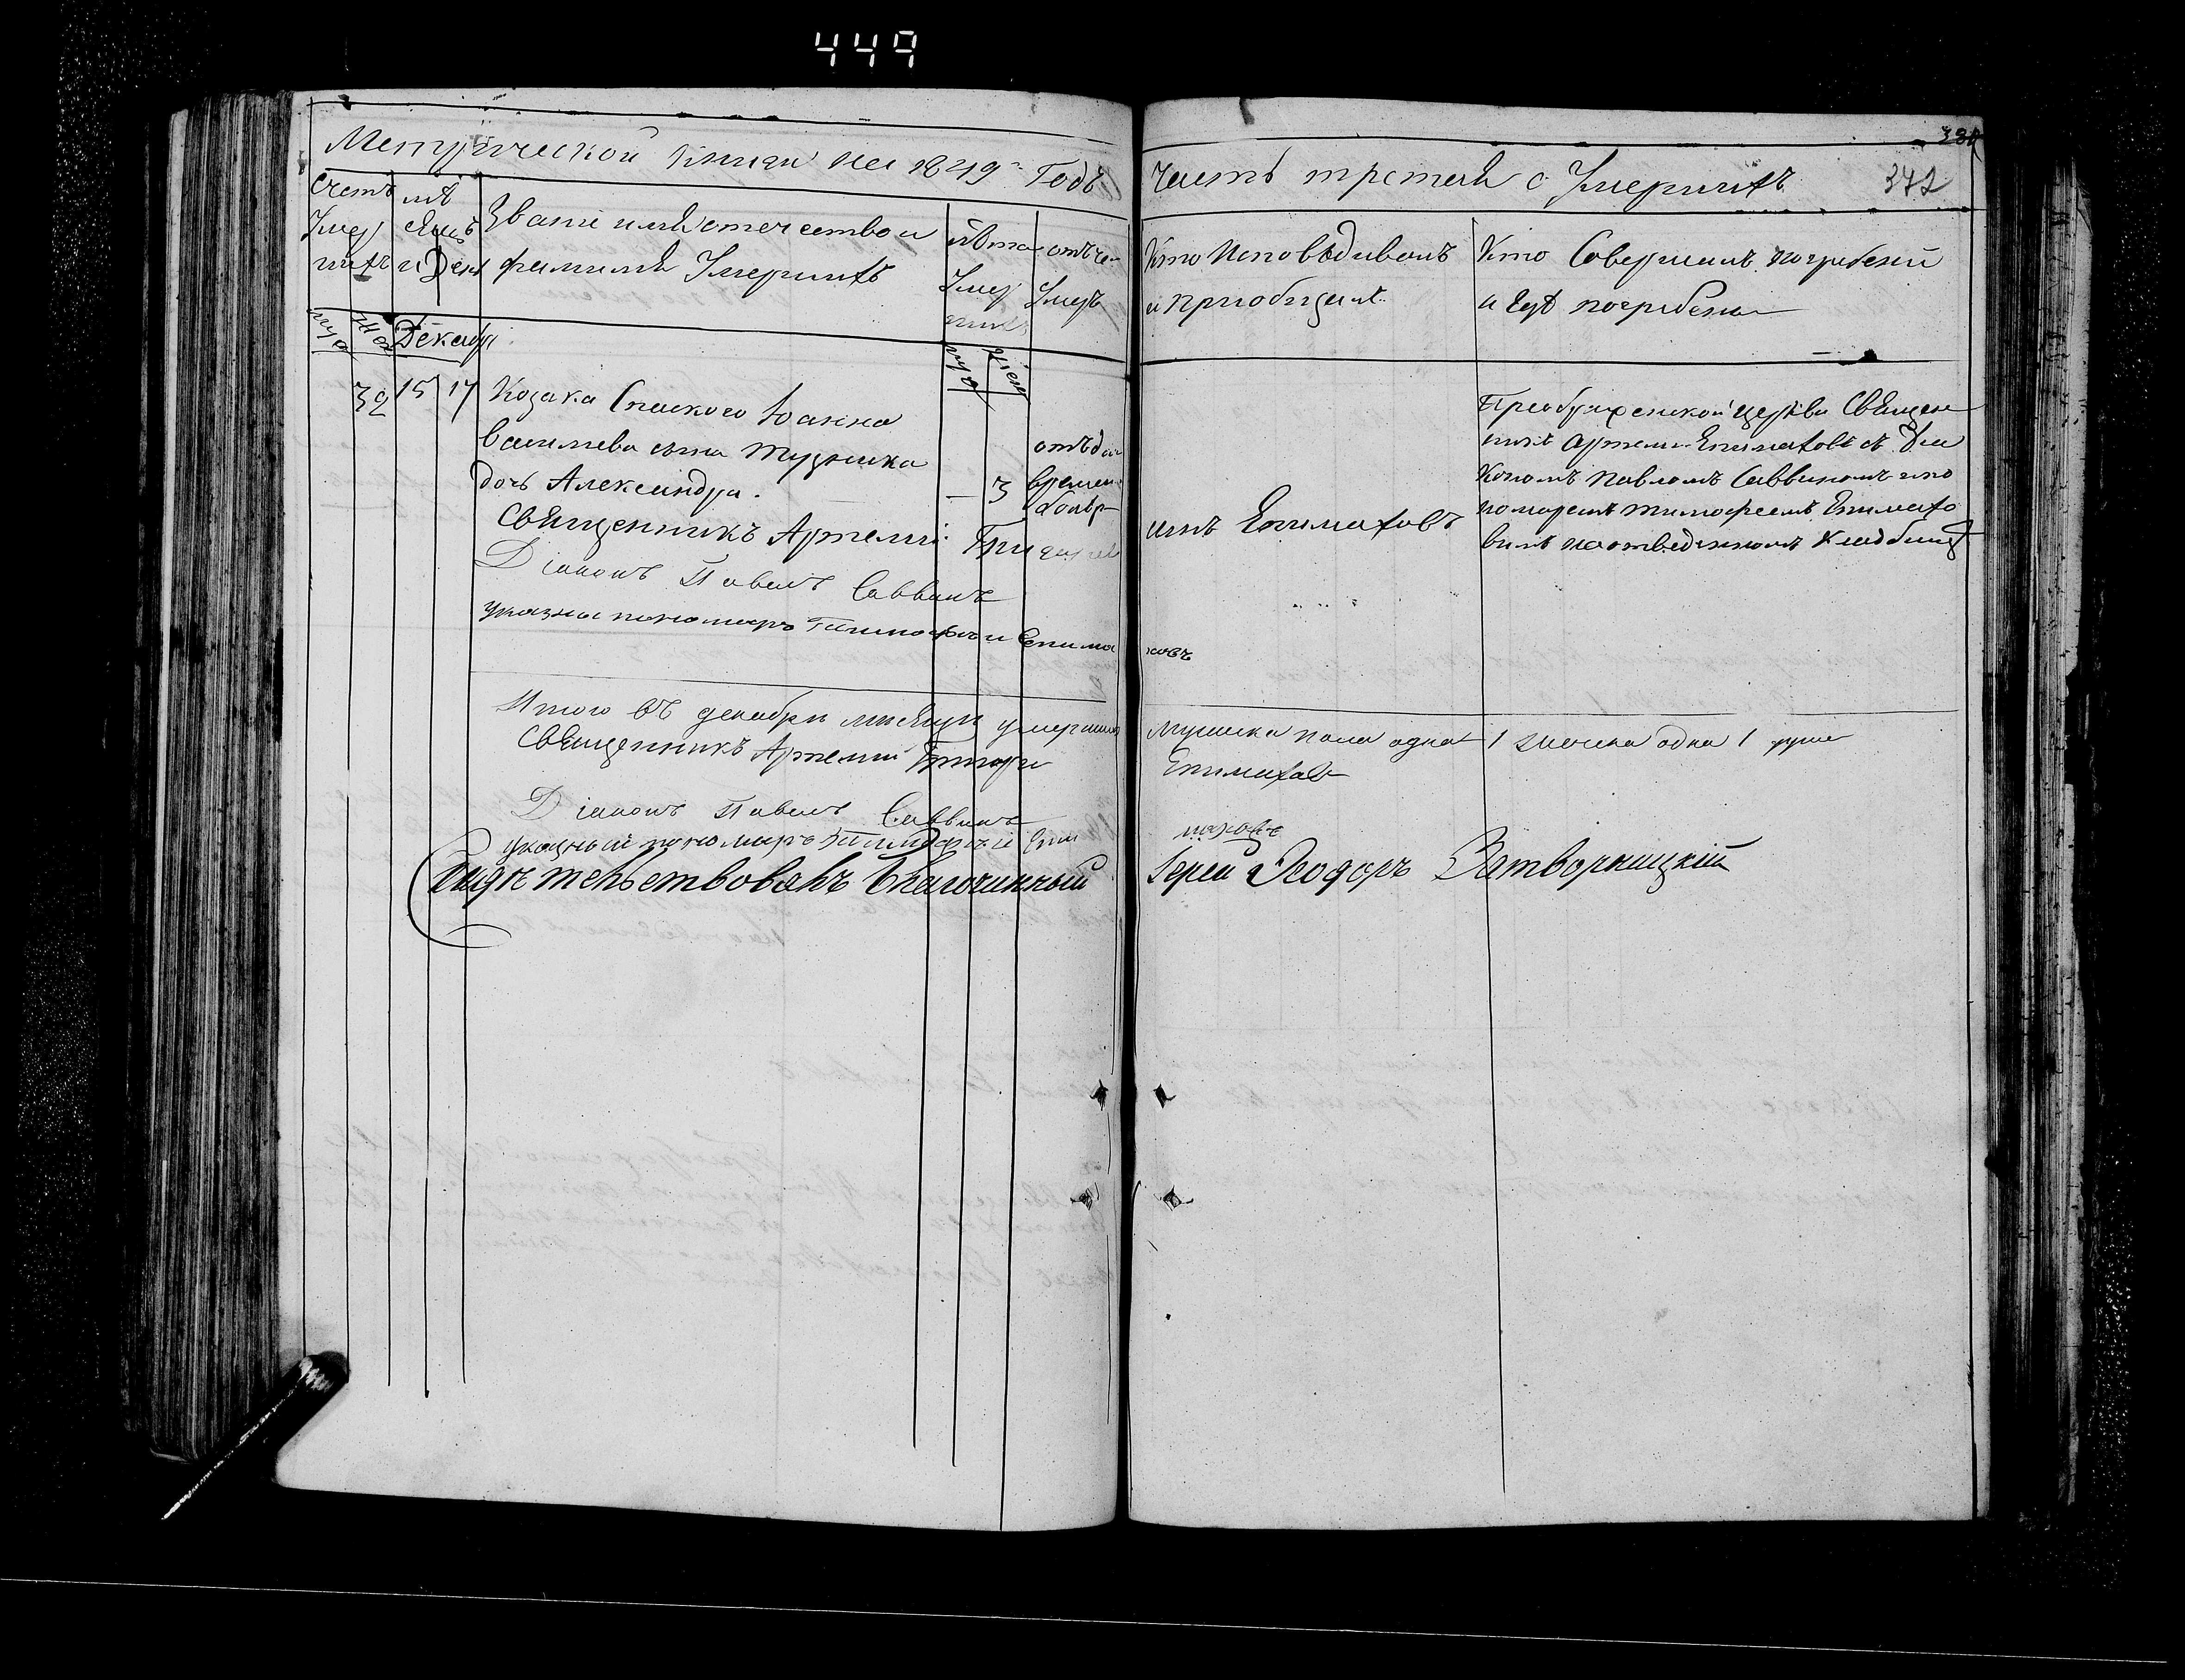 449
Метрической книги на 1849 Годъ
Часть третья о Умершихъ
342
Счетъ
Умер
шихъ
мѣ
сяцъ
и День
Званіе имя отечество и
фамилія Умершихъ
лѣта
Умер
шихъ
отъ чего
Умеръ
Кто Исповѣдивалъ
и приобщалъ
Кто Совершалъ погребеніи
и гдѣ погребены
Муж
Жен
Декабрь
муж
жен
32 15 17 Козака Спаского Іоанна
Василиева сына
дочь Александра. — 3
Священникъ Артемій Григориевъ
Діаконъ Павелъ Саввинъ
указный пономаръ Тимофей Епима
ховъ
сынъ Епимаховъ
Преображенской церкви Священ
никъ Артеми Епимаховъ съ Диа
кономъ Павломъ Саввинымъ и по
номаремъ Тимофеемъ Епимахо
вимъ на отведенномъ кладбищѣ
Итого въ декабри мисяци умершихъ мужеска пола одна 1 женска одна 1 душа
Священникъ Артемій Григори Епимаховъ
Діаконъ Павелъ Саввинъ
указный пономаръ Тимофей Епи маховъ
Свидѣтельствовалъ Благочинный Іерей Ѳеодоръ Затворницкій